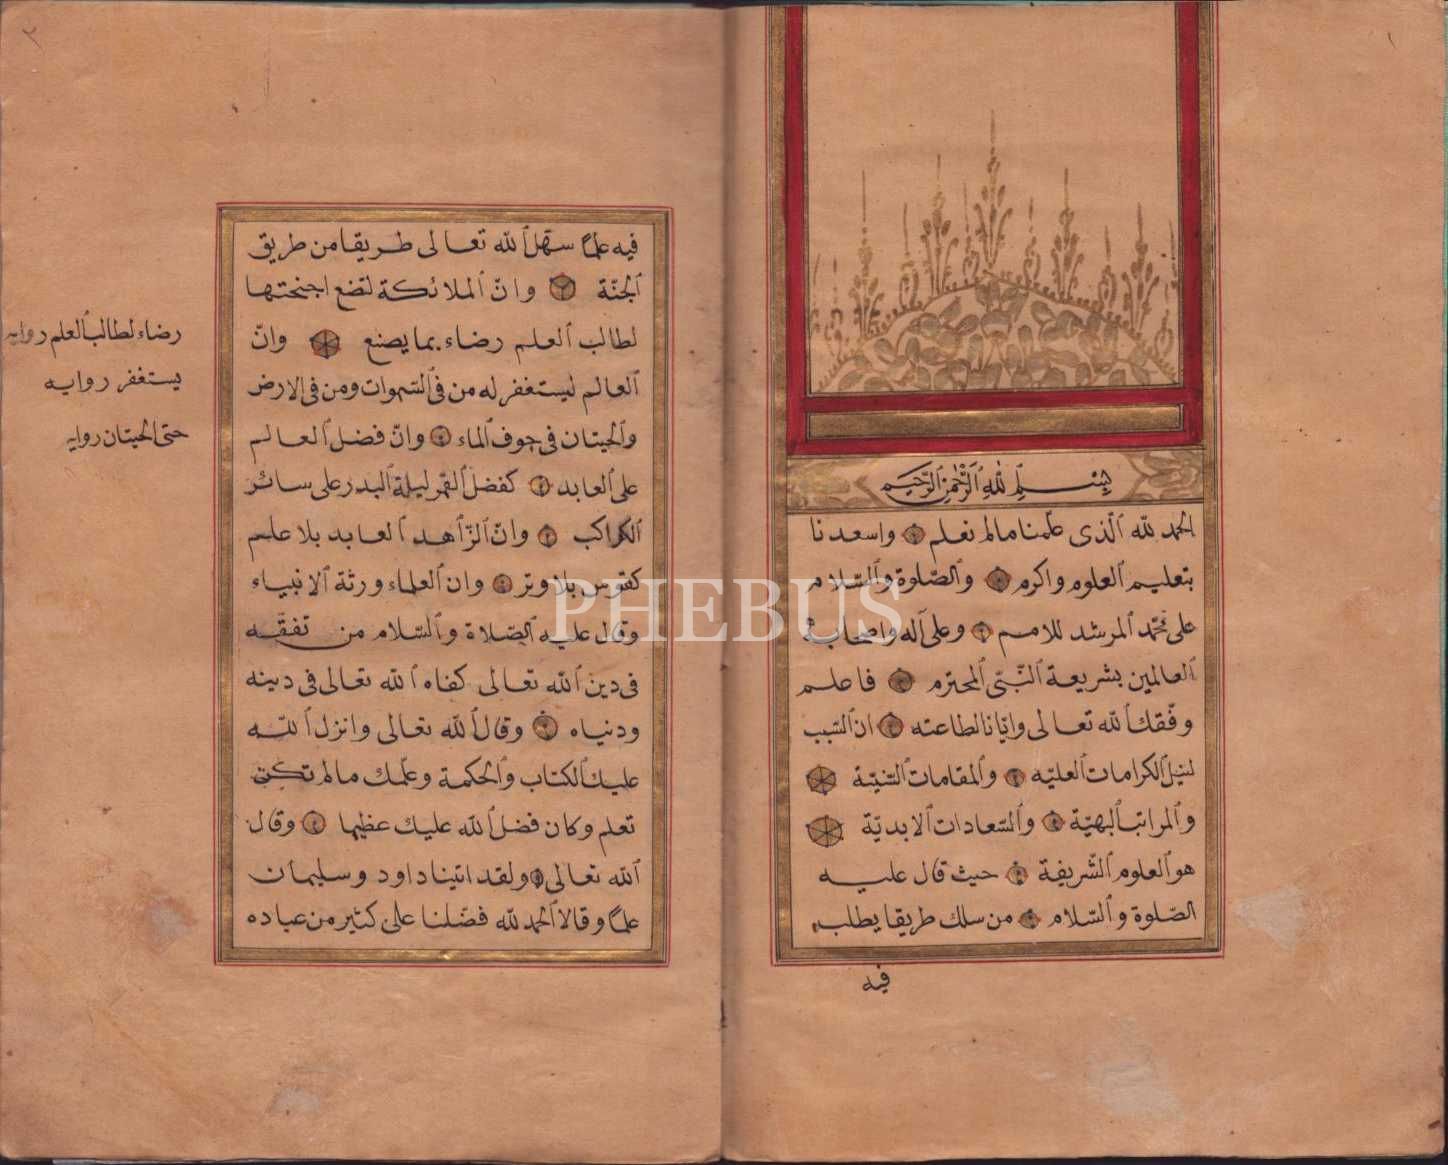 بسم الله الرحمن الرحيم
الحمد لله الذى علمنا مالم نعلم واسعدنا
بتعليم العلوم واكرم والصلوة والسلام
على محمد المرشد للامم وعلى آله واصحابه
العالمين بشريعة النبى المحترم فاعلم
وفقك الله تعالى وايانا لطاعته ان السبب
لنيل الكرامات العليه والمقامات السنية
والمراتب البهية والسعادات الابدية
هو العلوم الشريفة حيث قال عليه
الصلوة والسلام من سلك طريقا يطلب
فيه
فيه علما سهل الله تعالى طريقا من طريق
الجنة وان الملائكة لتضع اجنحتها
لطالب العلم رضاء بما يصنع وان
العالم ليستغفر له من فى السموات ومن فى الارض
والحيتان فى جوف الماء وان فضل العالم
على العابد كفضل القمر ليلة البدر على سائر
الكواكب وان الزاهد العابد بلا علم
كقوس بلا وتر وان العلماء ورثة الانبياء
وقال عليه الصلاة والسلام من تفقه
فى دين الله تعالى كفاه الله تعالى فى دينه
ودنياه وقال الله تعالى وانزل الله
عليك الكتاب والحكمة وعلمك مالم تكن
تعلم وكان فضل الله عليك عظيما وقال
الله تعالى ولقد اتينا داود وسليمان
علما وقالا الحمد لله فضلنا على كثير من عباده
رضاء لطالب العلم روايه
يستغفر روايه
حتى الحيتان روايه
٢
PHEBUS